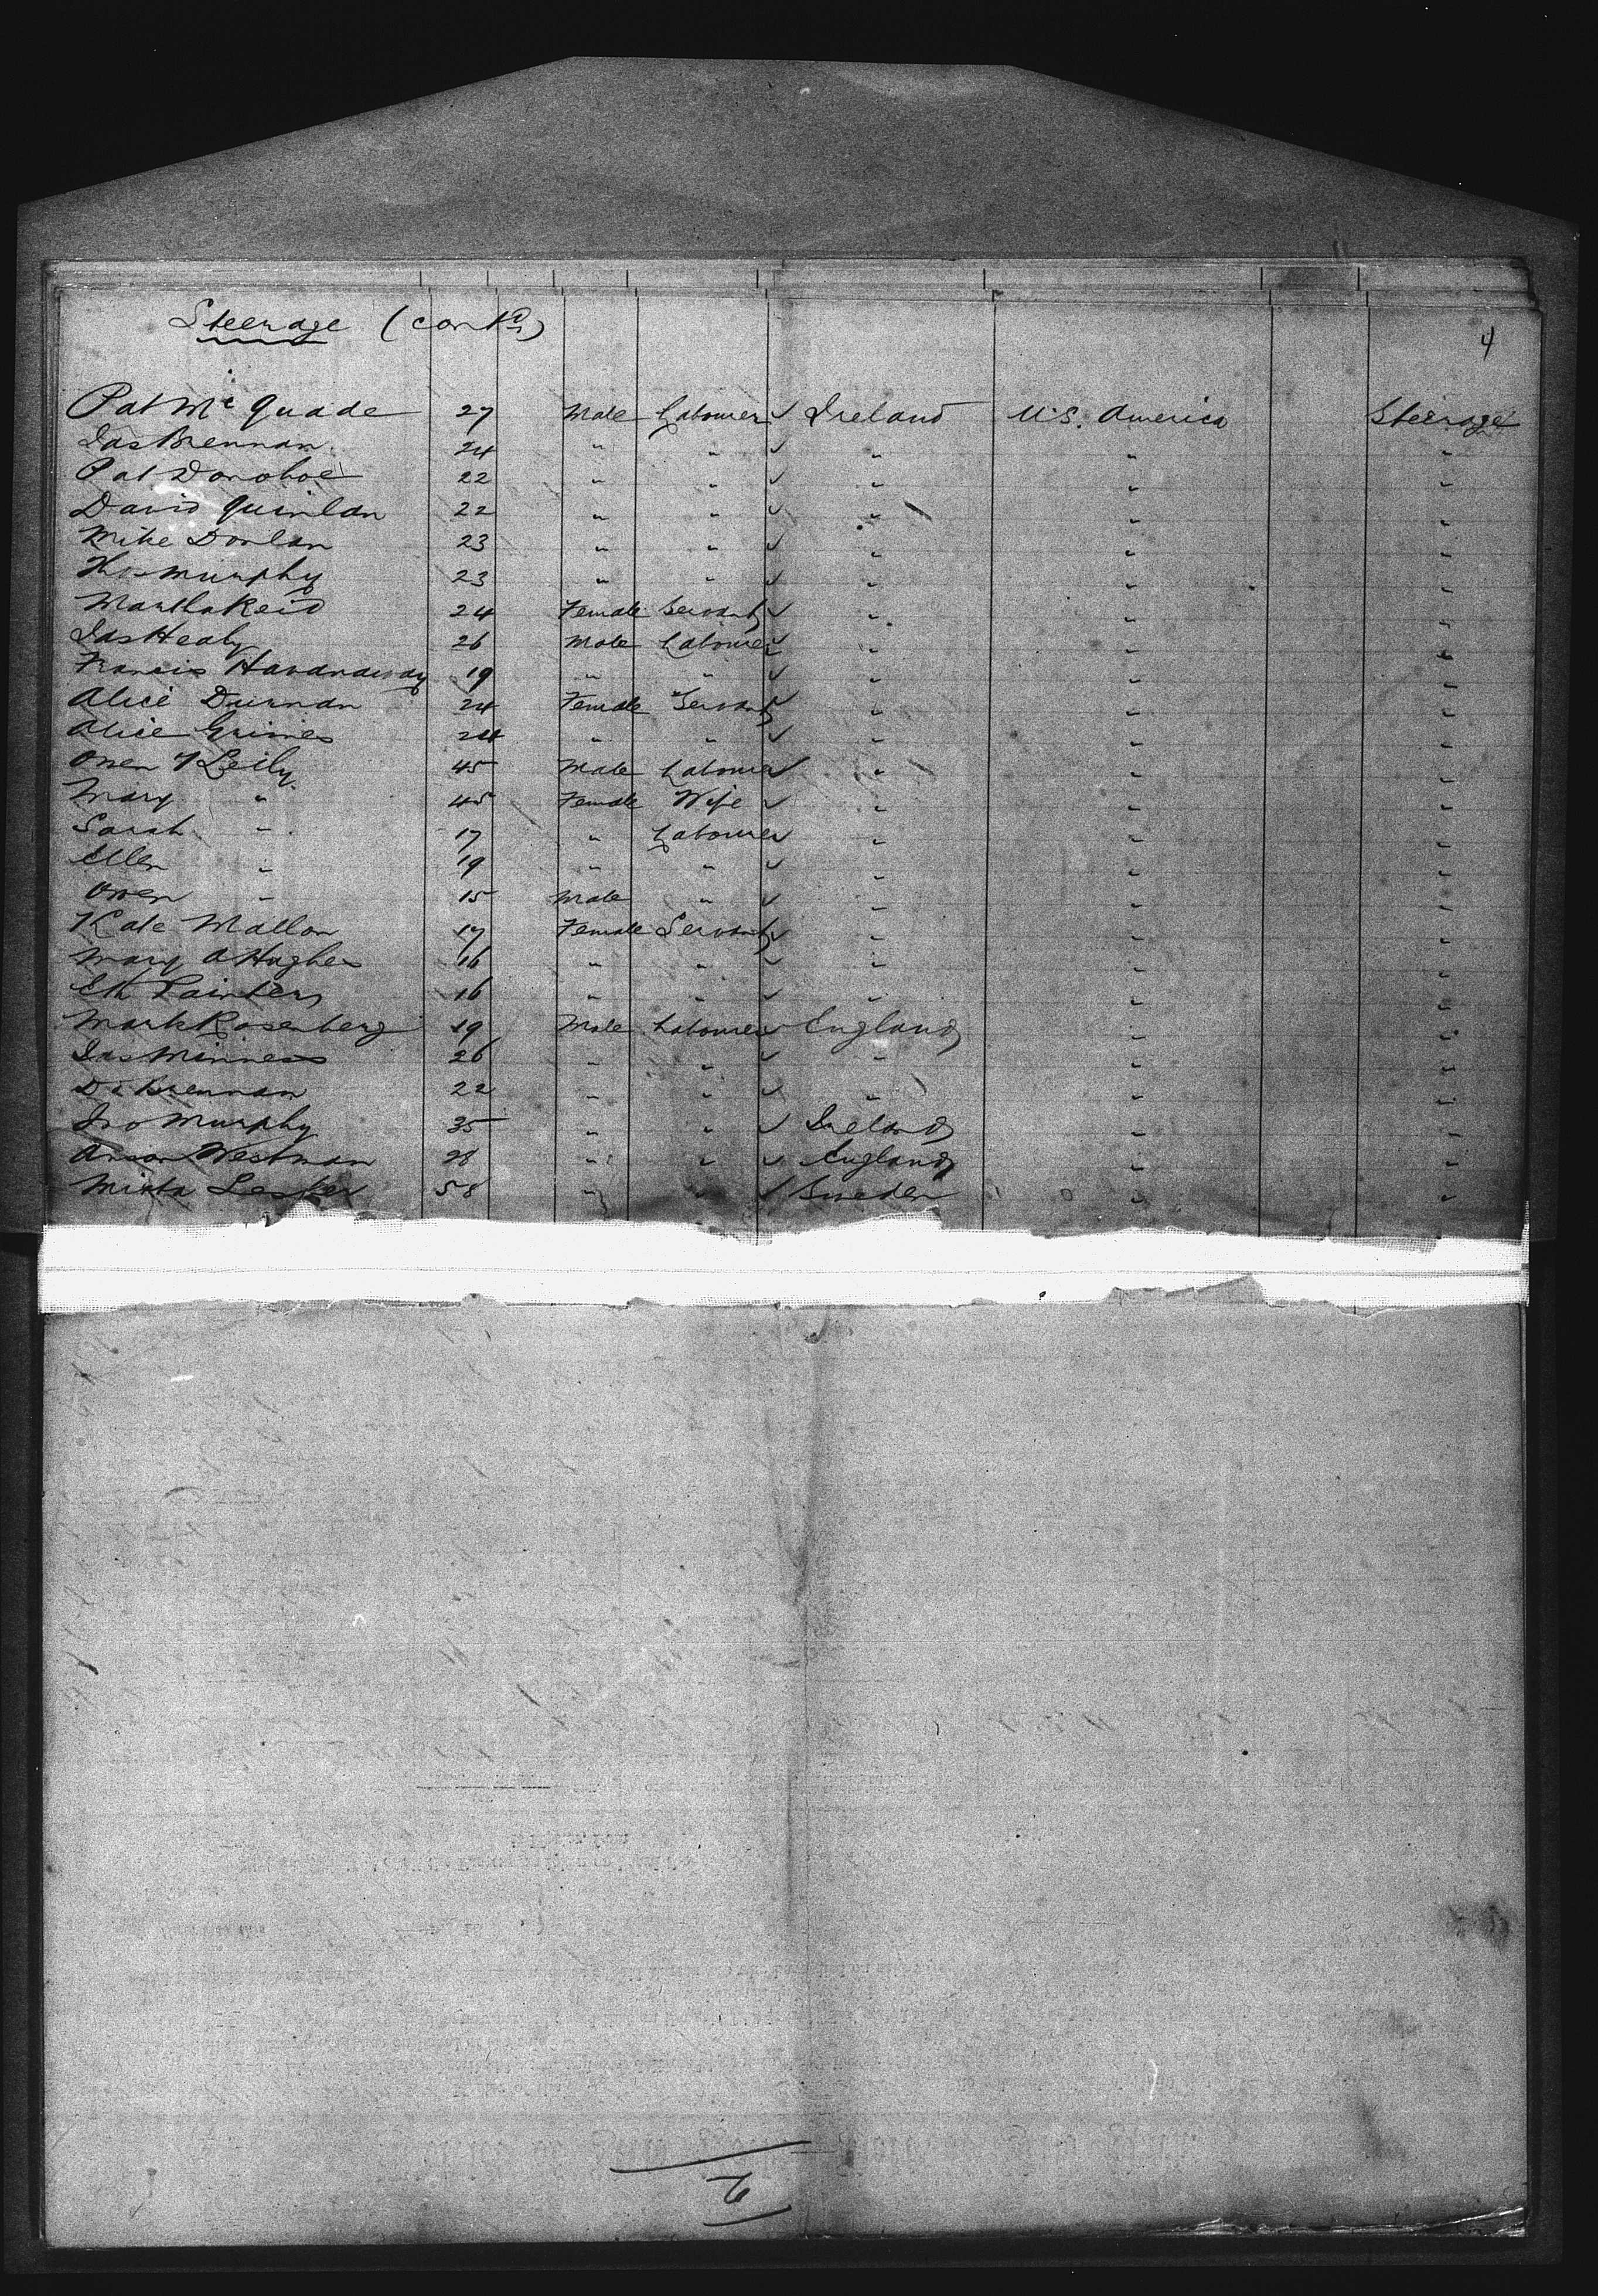 Steerage (contd) 4
Pat McQuade 27 Male Labourer ✓ Ireland U.S. America Steerage
Jas Brennan 24 " " ✓ " " "
Pat Donohoe 22 " " ✓ " " "
David Quinlan 22 " " ✓ " " "
Mike Donlan 23 " " ✓ " " "
Murphy 23 " " ✓ " " "
Martha Reid 24 Female Servant ✓ " " "
Jas Healy 26 Male Labourer ✓ " " "
Francis 19 " " ✓ " " "
Alice Durnan 24 Female Servant ✓ " " "
Alice Grimes 24 " " ✓ " " "
Owen 45 Male Labourer ✓ " " "
Mary " 45 Female Wife ✓ " " "
Sarah " 17 " Labourer ✓ " " "
Ellen " 19 " " ✓ " " "
Owen " 15 Male " ✓ " " "
Kate Mallon 17 Female Servant ✓ " " "
Mary A Hughes 16 " " ✓ " " "
16 " " ✓ " " "
Mark Rosenberg 19 Male Labourer ✓ England " "
Jas Minness 26 " " ✓ " " "
Brennan 22 " " ✓ " " "
Jno Murphy 35 " " ✓ Ireland " "
Westman 28 " " ✓ England " "
58 " " ✓ Sweden " "